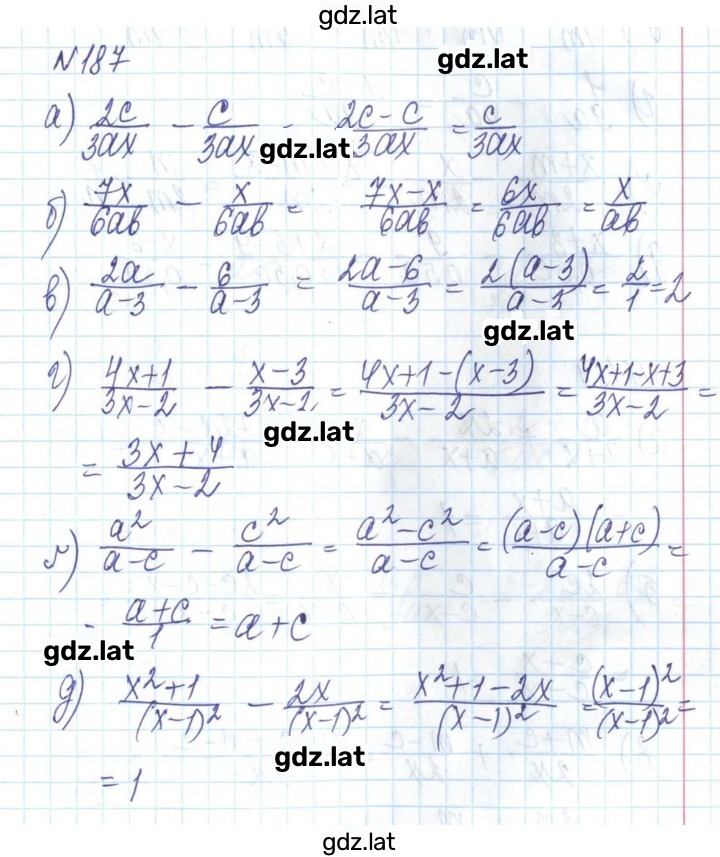 gdz.lat
N 187
gdz.lat
а) 2c/3ax - c/3ax - 2c-c/3ax = c/3ax
gdz.lat
б) 7x/6ab - x/6ab = 7x-x/6ab = 6x/6ab = x/ab
в) 2a/a-3 - 6/a-3 = 2a-6/a-3 = 2(a-3)/a-3 = 2/1 = 2
gdz.lat
г) 4x+1/3x-2 - x-3/3x-2 = 4x+1-(x-3)/3x-2 = 4x+1-x+3/3x-2 =
gdz.lat
= 3x+4/3x-2
a²/a-c - c²/a-c = a²-c²/a-c = (a-c)(a+c)/a-c =
- a+c/1 = a+c
gdz.lat
д) x²+1/(x-1)² - 2x/(x-1)² = x²+1-2x/(x-1)² = (x-1)²/(x-1)² =
gdz.lat
= 1
gdz.lat